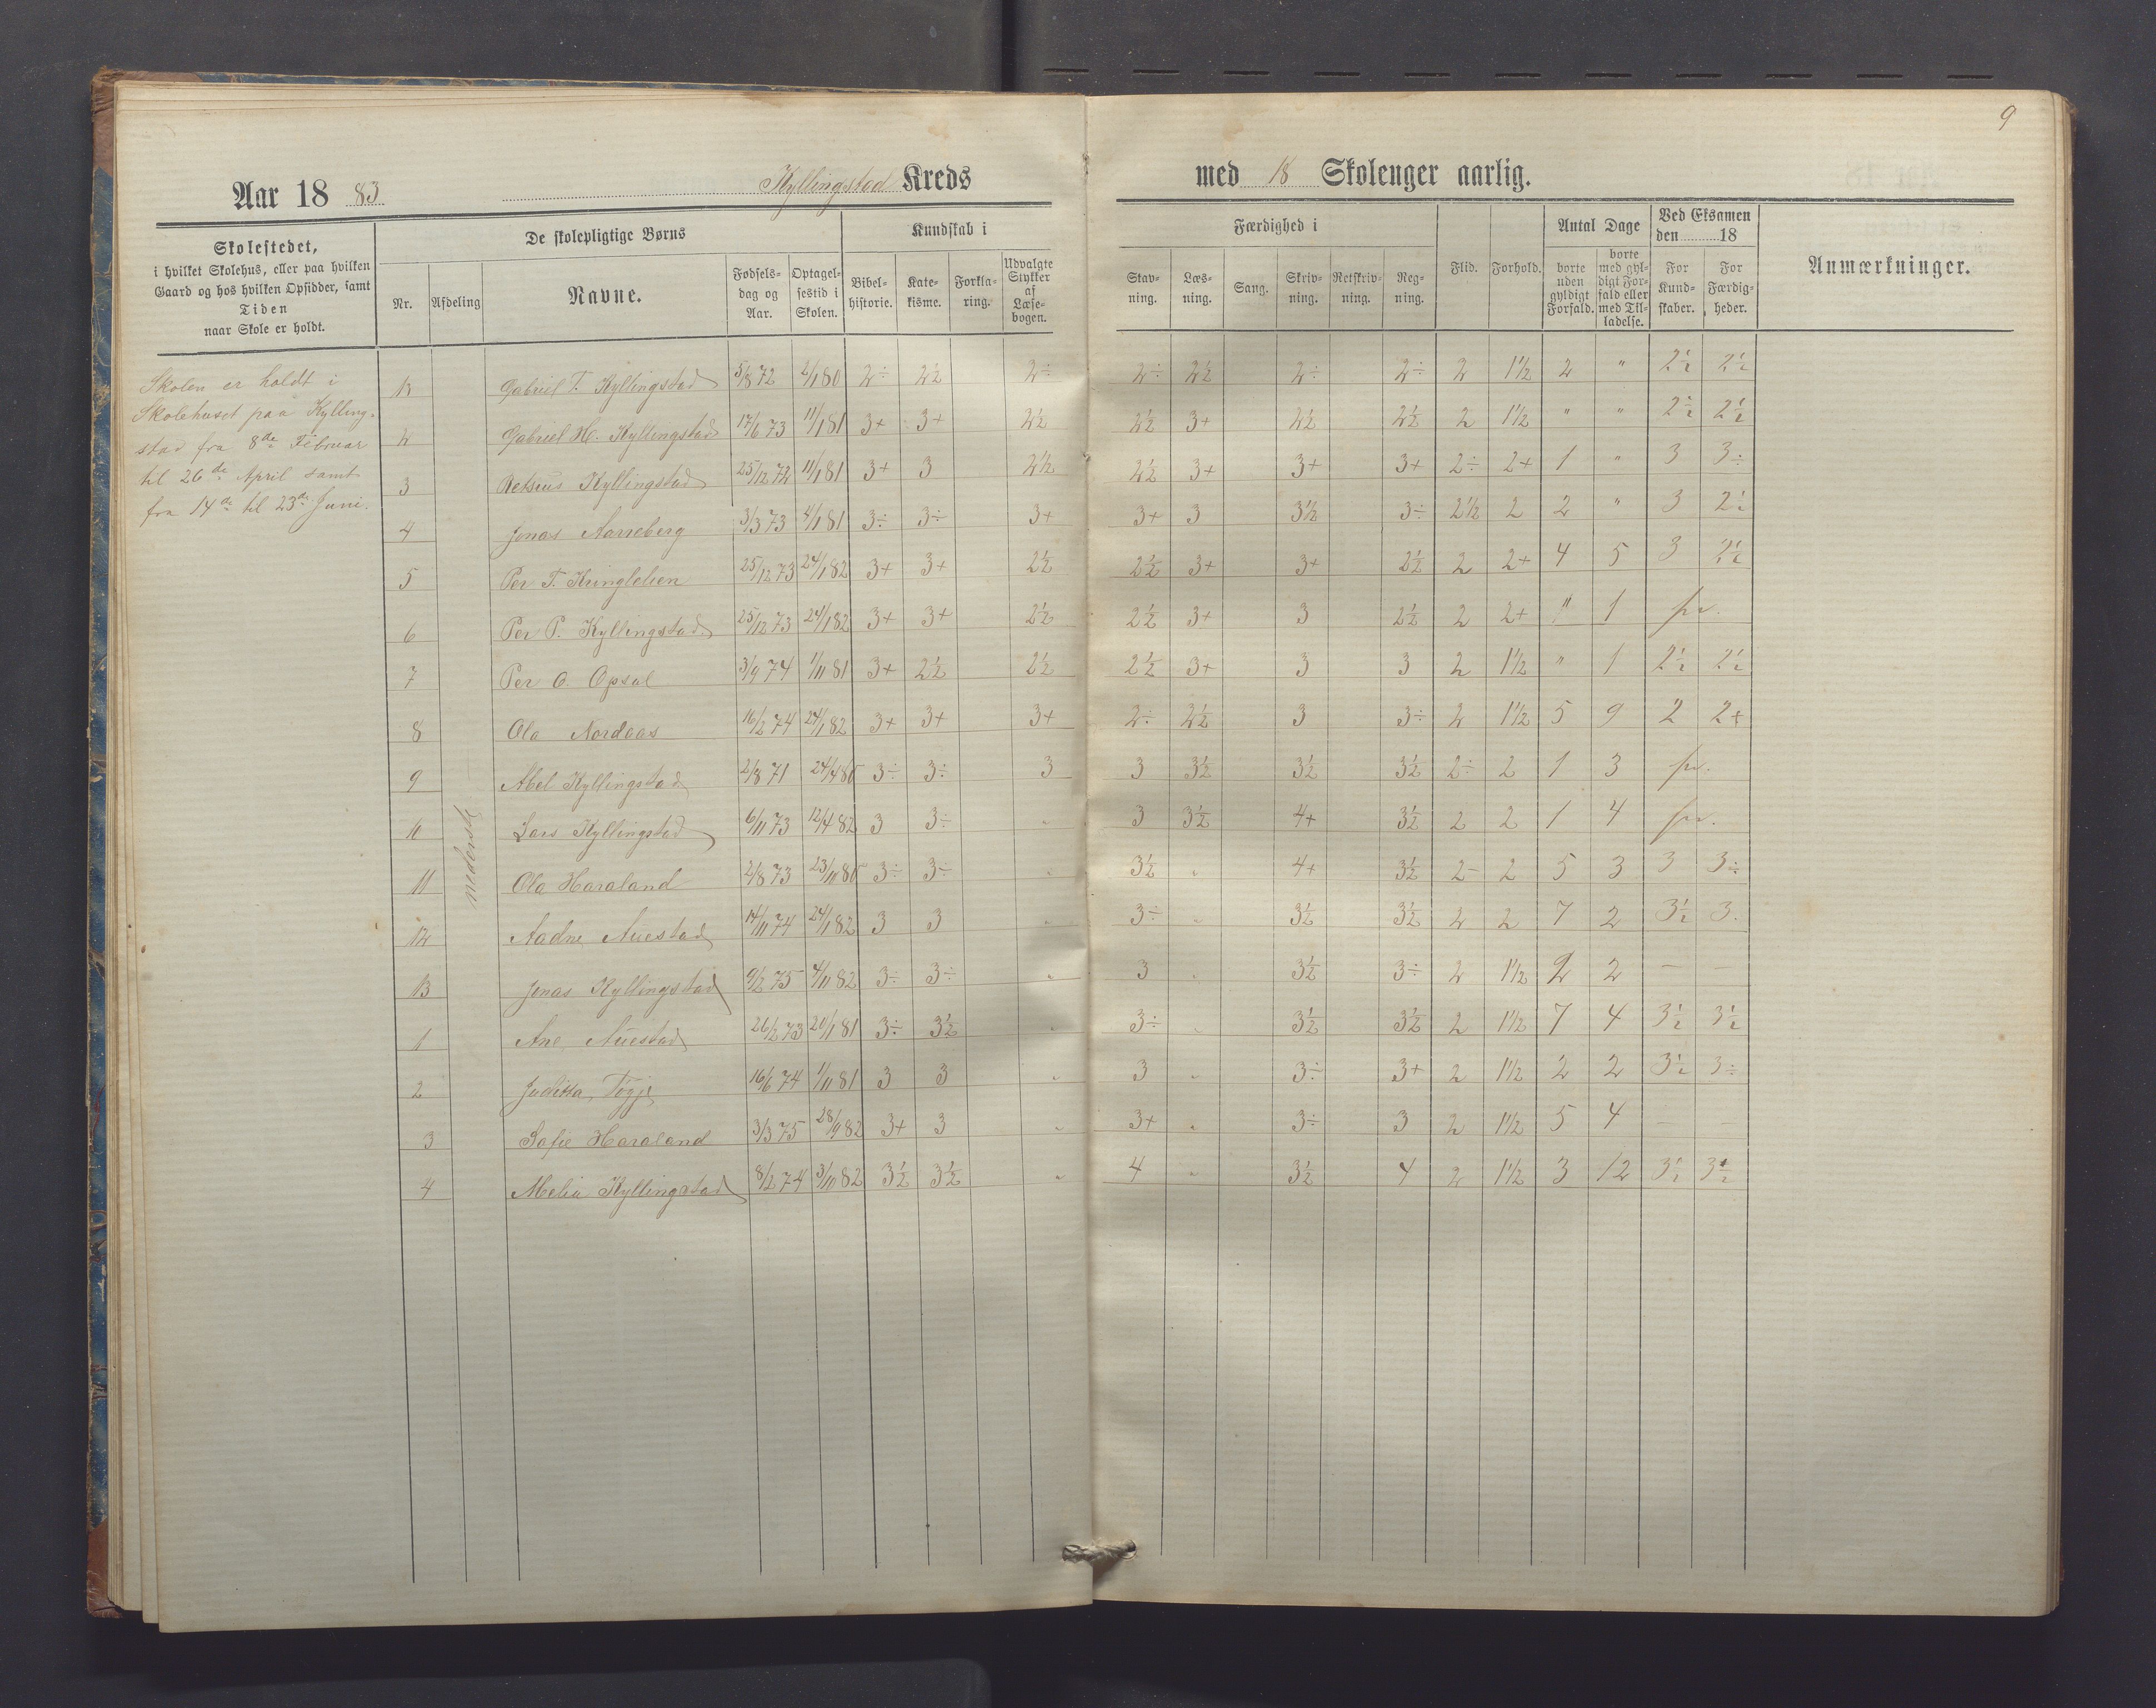 9
Aar 18 83 Kyllingstad Kreds med 18 Skoleuger aarlig.
Skolestedet,
i hvilket Skolehus, eller paa hvilken
Gaard og hos hvilken Opsidder, samt
Tiden
naar Skole er holdt.
De skolepligtige Børns
Nr. Afdeling Navne.
Fødsels-
dag og
Aar.
Optagel-
sestid i
Skolen.
Kundskab i
Bibel-
historie.
Kate-
kisme.
Forkla-
ring.
Udvalgte
Stykker
af
Læse-
bogen.
Færdighed i
Stav-
ning.
Læs-
ning.
Sang.
Skriv-
ning.
Retskriv-
ning.
Reg-
ning.
Flid.
Forhold.
Antal Dage
borte
uden
gyldigt
Forfald.
borte
med gyl-
digt For-
fald eller
med Til-
ladelse.
Ved Eksamen
den 18
For
Kund-
skaber.
For
Færdig-
heder.
Anmærkninger.
Skolen er holdt i
Skolehuset paa Kylling-
stad fra 8de Februar
til 26de April samt
fra 14de til 23de Juni.
nederste
Gabriel T. Kyllingstad 5/8 72 2/1 80 2÷ 2½ 2÷ 2÷ 2½ 2÷ 2÷ 2 1½ 2 " 2½ 2½
2 Gabriel H. Kyllingstad 17/6 73 11/1 81 3+ 3+ 2½ 2½ 3+ 2½ 2½ 2 1½ " " 2½ 2½
3 Kyllingstad 25/12 72 11/1 81 3+ 3 2½ 2½ 3+ 3+ 3+ 2÷ 2+ 1 " 3 3÷
4 Jonas 3/3 73 4/1 81 3÷ 3÷ 3+ 3+ 3 3½ 3÷ 2½ 2 2 " 3 2½
5 Per T. Kringlelien 25/12 73 24/1 82 3+ 3+ 2½ 2½ 3+ 3+ 2½ 2 2+ 4 5 3 2½
6 Per P. Kyllingstad 25/12 73 24/1 82 3+ 3+ 2½ 2½ 3+ 3 2½ 2 2+ " 1 fr.
7 Per O. Opsal 3/9 74 1/11 81 3+ 2½ 2½ 2½ 3+ 3 3 2 1½ " 1 2½ 2½
8 Ola Nordaas 16/2 74 24/1 82 3+ 3+ 3+ 2÷ 2½ 3 3÷ 2 1½ 5 9 2 2+
9 Abel Kyllingstad 2/8 71 24/4 80 3÷ 3÷ 3 3 3½ 3½ 3½ 2÷ 2 1 3 fr.
10 Lars Kyllingstad 6/11 73 12/4 82 3 3÷ " 3 3½ 4+ 3½ 2 2 1 4 fr.
11 Ola Haraland 2/8 73 23/10 80 3÷ 3÷ " 3½ " 4+ 3½ 2- 2 5 3 3 3÷
12 Aadne Auestad 14/11 74 24/1 82 3 3 " 3÷ " 3½ 3½ 2 2 7 2 3½ 3.
13 Jonas Kyllingstad 9/2 75 4/11 82 3÷ 3÷ " 3 " 3½ 3÷ 2 1½ 2 2 — —
1 Ane Auestad 26/2 73 20/1 81 3÷ 3½ " 3÷ " 3½ 3½ 2 1½ 7 4 3½ 3½
2 Juditta Tøgje 16/6 74 1/11 81 3 3 " 3 " 3÷ 3+ 2 1½ 2 2 3½ 3÷
3 Sofie Haraland 3/3 75 28/9 82 3+ 3 " 3+ " 3÷ 3 2 1½ 5 4 — —
4 Melia Kyllingstad 8/2 74 3/10 82 3½ 3½ " 4 " 3½ 4 2 1½ 3 12 3½ 3½